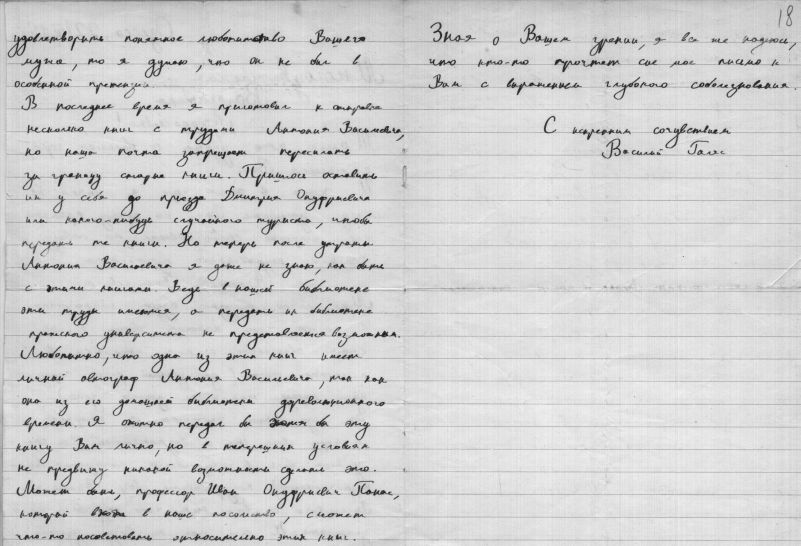 18
удовлетворить понятное любопытство Вашего
мужа, то я думаю, что он не был в
особенной претензии.
В последнее время я приготовил к отправке
несколько книг с трудами Антония Васильевича,
но наша почта запрещает пересылать
за границу старые книги. Пришлось оставить
их у себя до приезда Дмитрия Онуфриевича
или какого-нибудь случайного туриста, чтобы
передать те книги. Но теперь после утраты
Антония Васильевича я даже не знаю, как быть
с этими книгами. Ведь в нашей библиотеке
эти труды имеются, а передать их библиотеке
пражского университета не представляется возможным.
Любопытно, что одна из этих книг имеет
личный автограф Антония Васильевича, так как
она из его домашней библиотеки дореволюционного
времени. Я охотно передал бы эту
книгу Вам лично, но в теперешних условиях
не предвижу никакой возможности сделать это.
Может быть, профессор Иван Онуфриевич Панас,
который вхож в наше посольство, сможет
что-то посоветовать относительно этих книг.
Зная о Вашем зрении, я все же надеюсь,
что кто-то прочтет сие мое письмо к
Вам с выражением глубокого соболезнования.
С искренним сочувствием
Василий